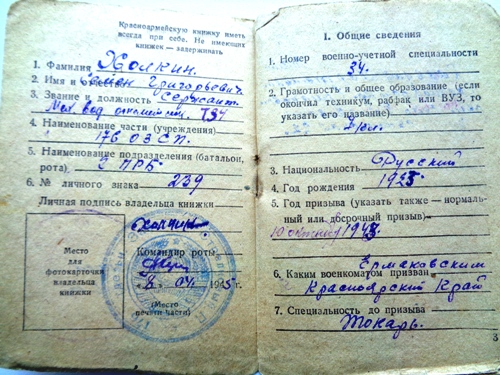 Красноармейскую книжку иметь
всегда при себе. Не имеющих
книжек — задерживать
1. Фамилия Холкин.
2. Имя и отчество Семен Григорьевич.
3. Звание и должность Сержант.
Мех вод Т34
4. Наименование части (учреждения)
176 ОЗСП.
5. Наименование подразделения (батальон,
рота) 2 ПРБ.
6. № личного знака 239
Личная подпись владельца книжки
Холкин
Место
для
фотокарточки
владельца
книжки
Командир роты
04 1945 г.
(Место
печати части)
I. Общие сведения
1. Номер военно-учетной специальности
34.
2. Грамотность и общее образование (если
окончил техникум, рабфак или ВУЗ, то
указать его название)
3. Национальность Русский
4. Год рождения 1925
5. Год призыва (указать также — нормаль-
ный или досрочный призыв)
10 октября 1943
6. Каким военкоматом призван Ермаковским
Красноярский Край
7. Специальность до призыва
Токарь.
3